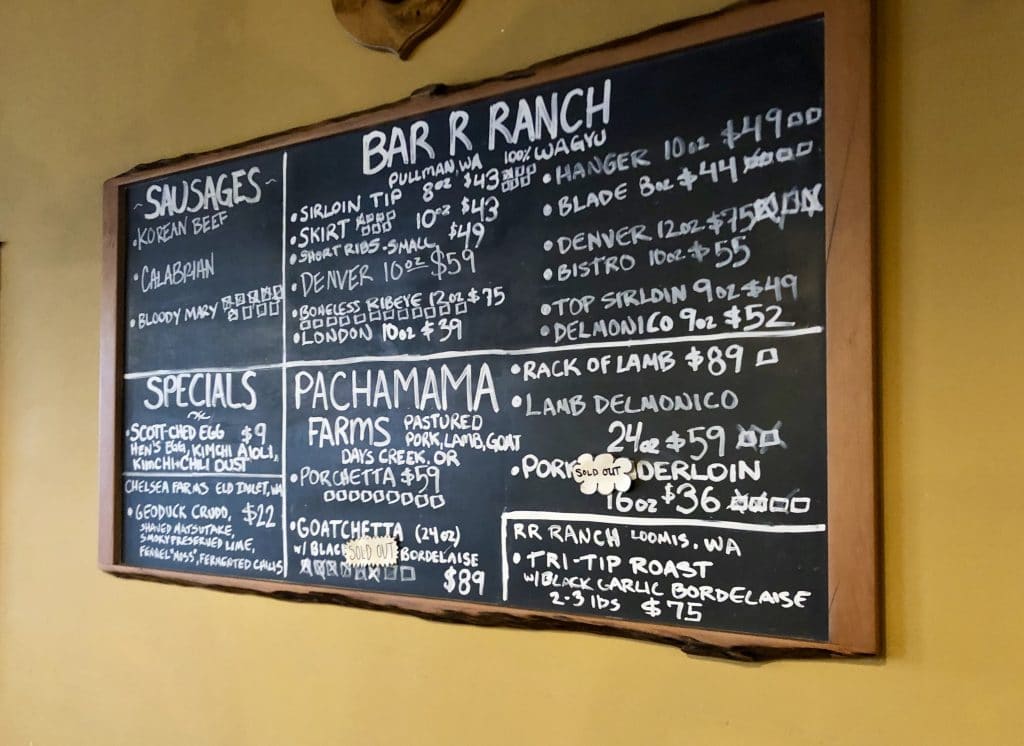 ~SAUSAGES~
•KOREAN BEEF
•CALABRIAN
•BLOODY MARY
SPECIALS
•SCOTT-CHED EGG $9
HEN'S EGG, KIMCHI AIOLI,
KIMCHI+CHILI DUST
CHELSEA FARMS ELD INLET, WA
•GEODUCK CRUDO, $22
SHAVED MATSUTAKE,
SMOKY PRESERVED LIME,
FENNEL "MOSS", FERMENTED CHILIS
BAR R RANCH
PULLMAN, WA 100% WAGYU
•SIRLOIN TIP 8oz $43
•SKIRT 10oz $43
•SHORT RIBS-SMALL $49
•DENVER 10oz $59
•BONELESS RIBEYE 12oz $75
•LONDON 10oz $39
•HANGER 10oz $49
•BLADE 8oz $44
•DENVER 12oz $75
•BISTRO 10oz $55
•TOP SIRLOIN 9oz $49
•DELMONICO 9oz $52
PACHAMAMA
FARMS PASTURED
PORK, LAMB, GOAT
DAYS CREEK, OR
•PORCHETTA $59
•GOATCHETTA (24oz)
W/ BLAC SOLD OUT BORDELAISE
$89
•RACK OF LAMB $89
•LAMB DELMONICO
24oz $59
•PORK SOLD OUT DERLOIN
16oz $36
RR RANCH LOOMIS, WA
•TRI-TIP ROAST
W/BLACK GARLIC BORDELAISE
2-3 lbs $75